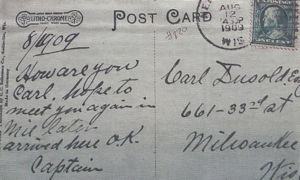 LITHO-CHROME
POST CARD
AUG
12
1909
WIS.
8/10 09
How are you
Carl, hope to
meet you again in
Mil. later
arrived here O.K.
Captain
Carl Dusold
661-33rd st
Milwaukee
Wis